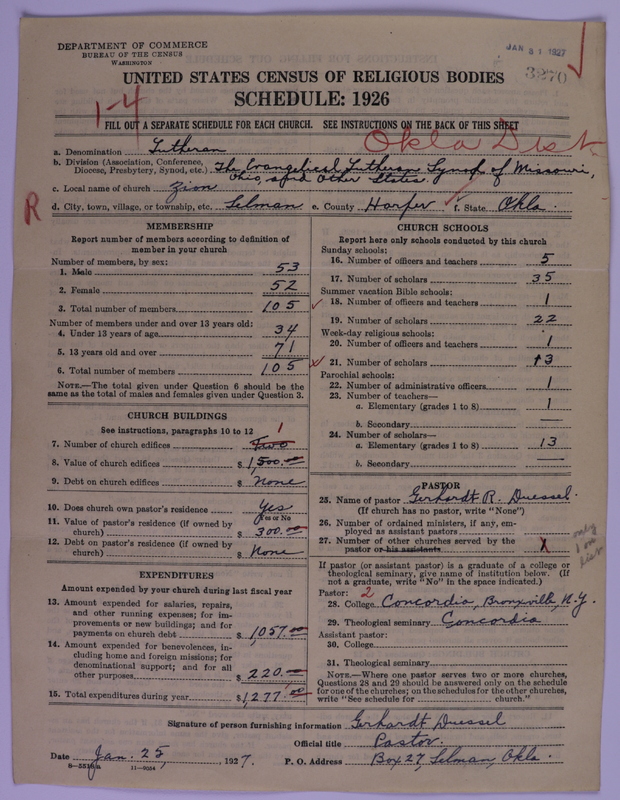 DEPARTMENT OF COMMERCE
BUREAU OF THE CENSUS
WASHINGTON
JAN 31 1927
3270
UNITED STATES CENSUS OF RELIGIOUS BODIES
SCHEDULE: 1926
1-4
FILL OUT A SEPARATE SCHEDULE FOR EACH CHURCH. SEE INSTRUCTIONS ON THE BACK OF THIS SHEET
Okla Dist.
a. Denomination Lutheran
b. Division (Association, Conference, Diocese, Presbytery, Synod, etc.) The Evangelical Lutheran Synod of Missouri,
Ohio, and Other States.
c. Local name of church Zion
R
d. City, town, village, or township, etc. Selman e. County Harper f. State Okla.
MEMBERSHIP
Report number of members according to definition of
member in your church
Number of members, by sex:
1. Male 53
2. Female 52
3. Total number of members 105
Number of members under and over 13 years old:
4. Under 13 years of age 34
5. 13 years old and over 71
6. Total number of members 105
NOTE.—The total given under Question 6 should be the
same as the total of males and females given under Question 3.
CHURCH BUILDINGS
See instructions, paragraphs 10 to 12
7. Number of church edifices Two 1
8. Value of church edifices $ 1,500.00
9. Debt on church edifices $ None
10. Does church own pastor's residence? Yes
Yes or No
11. Value of pastor's residence (if owned by
church) $ 300.00
12. Debt on pastor's residence (if owned by
church) $ None
EXPENDITURES
Amount expended by your church during last fiscal year
13. Amount expended for salaries, repairs,
and other running expenses; for im-
provements or new buildings; and for
payments on church debt $ 1,057.00
14. Amount expended for benevolences, in-
cluding home and foreign missions; for
denominational support; and for all
other purposes $ 220.00
15. Total expenditures during year $ 1,277.00
CHURCH SCHOOLS
Report here only schools conducted by this church
Sunday schools:
16. Number of officers and teachers 5
17. Number of scholars 35
Summer vacation Bible schools:
18. Number of officers and teachers 1
19. Number of scholars 22
Week-day religious schools:
20. Number of officers and teachers 1
21. Number of scholars 13
Parochial schools:
22. Number of administrative officers 1
23. Number of teachers—
a. Elementary (grades 1 to 8) 1
b. Secondary —
24. Number of scholars—
a. Elementary (grades 1 to 8) 13
b. Secondary —
PASTOR
25. Name of pastor Gerhardt R. Duessel.
(If church has no pastor, write "None")
26. Number of ordained ministers, if any, em-
ployed as assistant pastors
27. Number of other churches served by the
pastor or his assistants
only
If pastor (or assistant pastor) is a graduate of a college or
theological seminary, give name of institution below. (If
not a graduate, write "No" in the space indicated.)
Pastor: 2
28. College Concordia, Bronxville, N.Y.
29. Theological seminary Concordia
Assistant pastor:
30. College
31. Theological seminary
NOTE.—Where one pastor serves two or more churches,
Questions 28 and 29 should be answered only on the schedule
for one of the churches; on the schedules for the other churches,
write "See schedule for church."
Signature of person furnishing information Gerhardt Duessel
Official title Pastor.
Date Jan. 25, 1927. P. O. Address Box 27, Selman, Okla.
11-9054